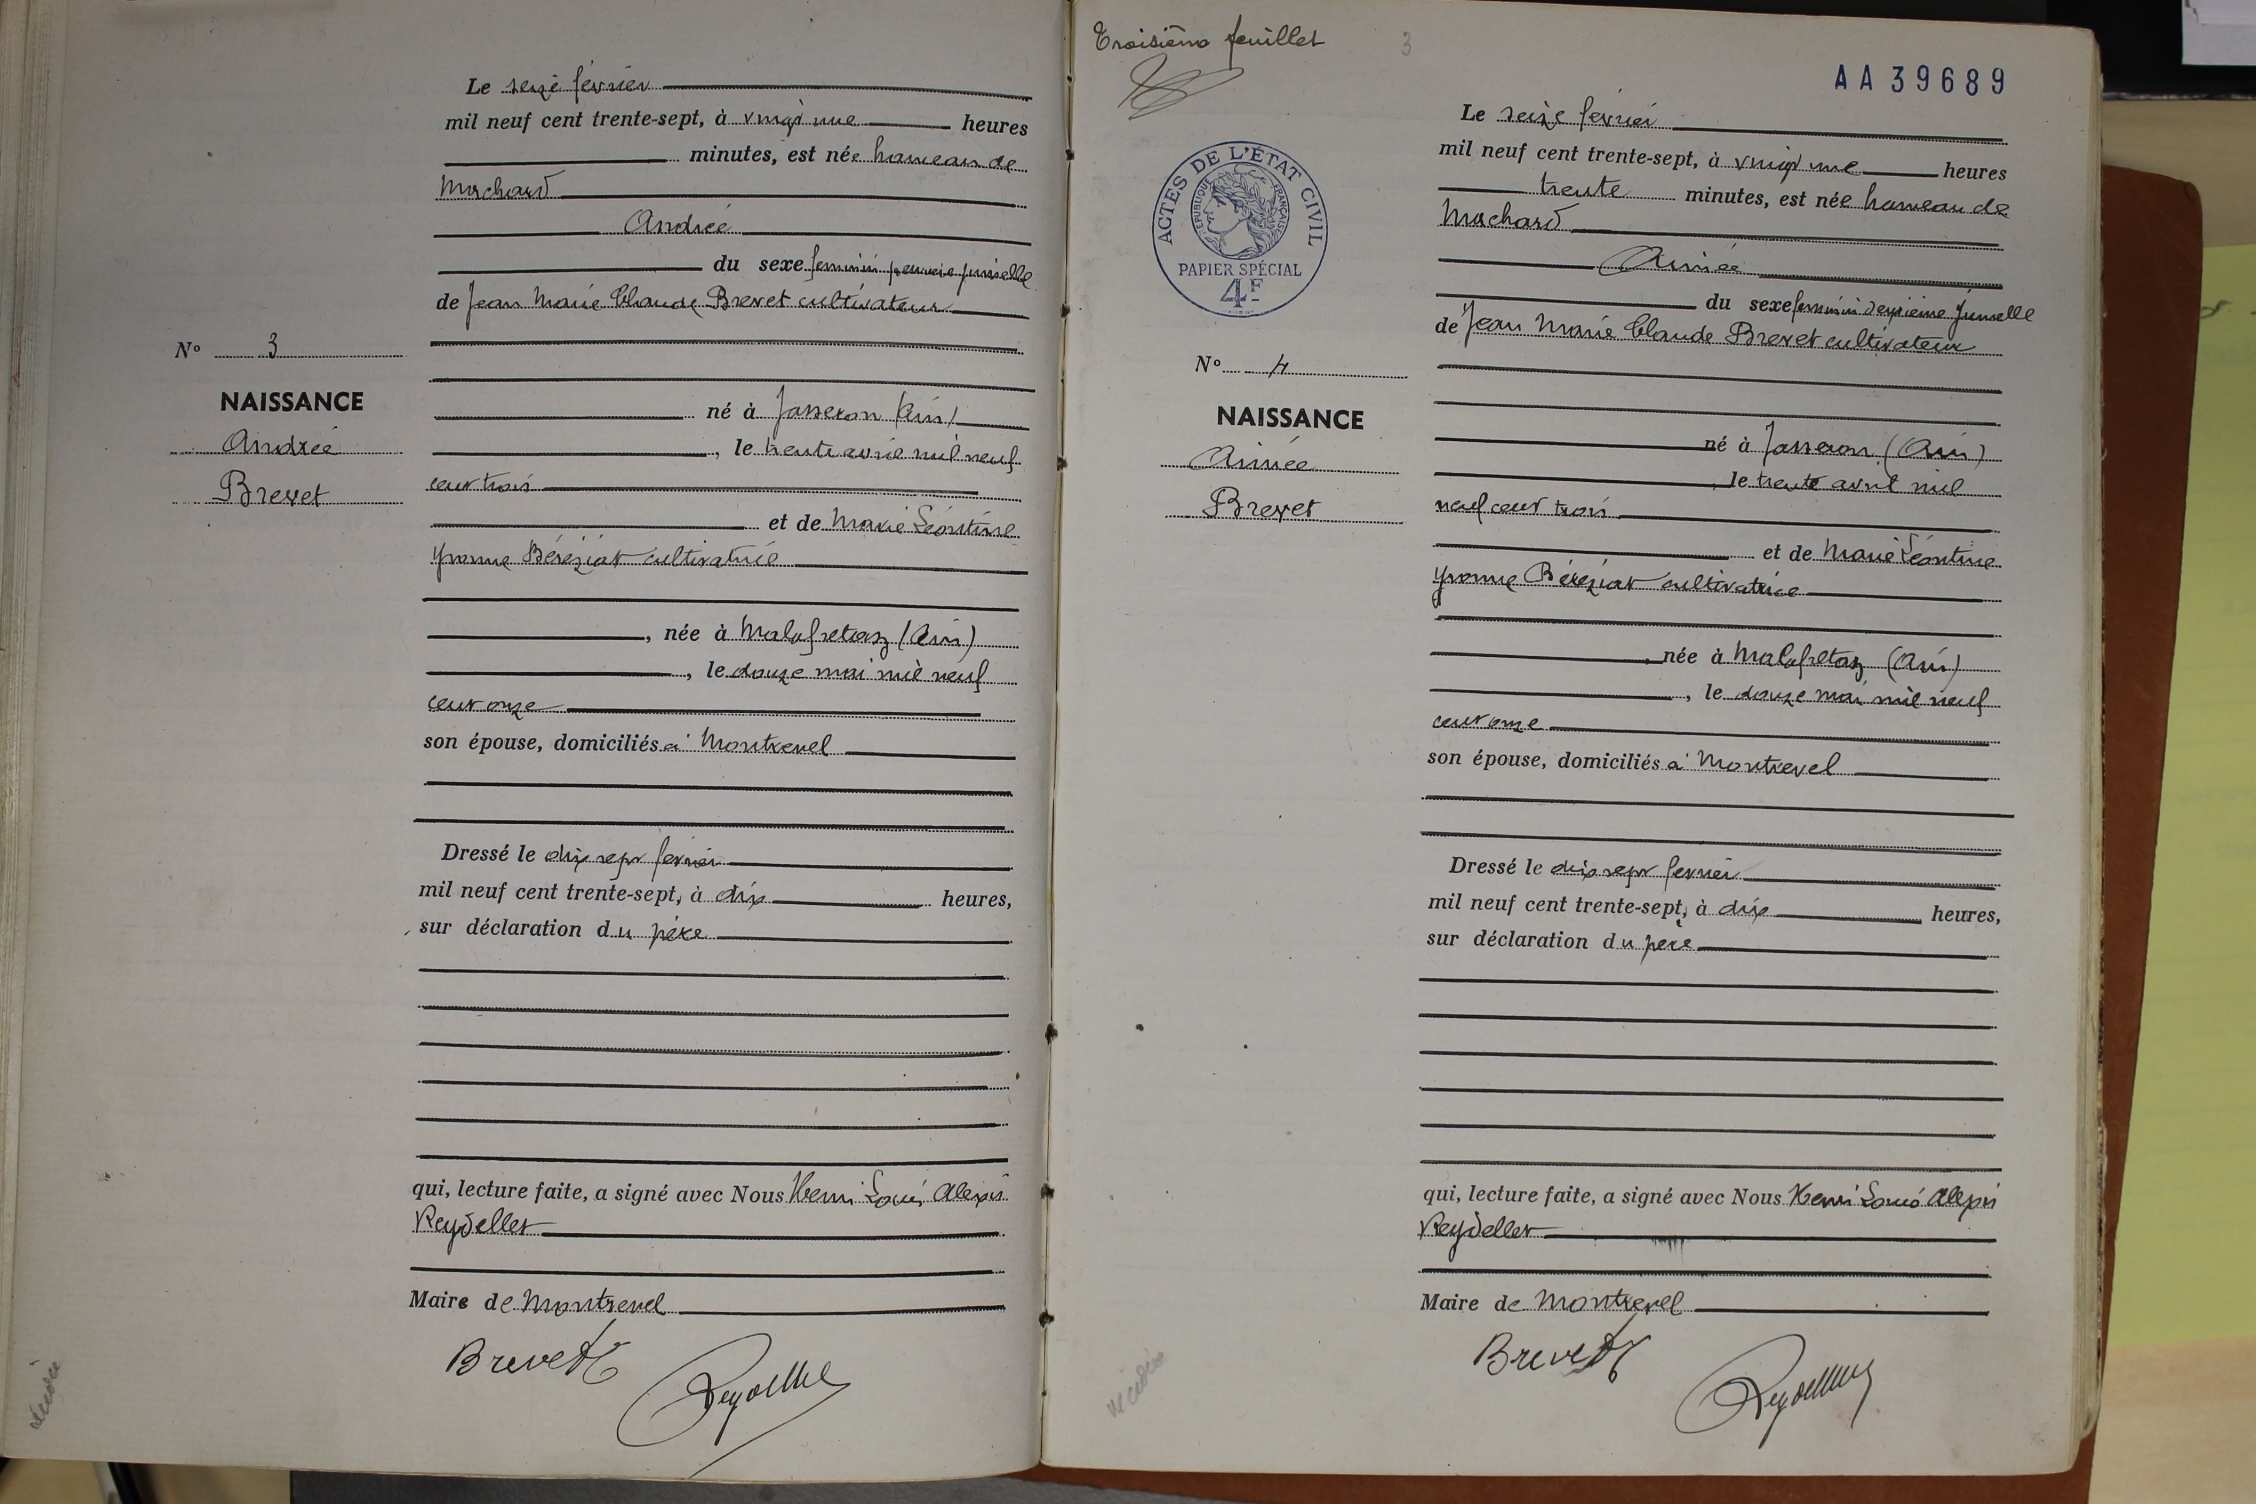 Le seize février
mil neuf cent trente-sept, à vingt une heures
minutes, est née hameau de
Machard
Andrée
du sexe féminin première jumelle
de Jean Marie Claude Brevet cultivateur
N° 3
NAISSANCE
Andrée
Brevet
né à Jasseron (Ain)
, le trente avril mil neuf
cent trois
et de Marie Léontine
Yvonne Béréziat cultivatrice
, née à Malafretaz (Ain)
, le douze mai mil neuf
cent onze
son épouse, domiciliés à Montrevel
Dressé le dix sept février
mil neuf cent trente-sept, à dix heures,
sur déclaration du père
qui, lecture faite, a signé avec Nous Henri Louis Alexis
Reydellet
Maire de Montrevel
Brevet
Reydellet
décédée
Troisième feuillet 3
AA39689
ACTES DE L'ÉTAT CIVIL
RÉPUBLIQUE FRANÇAISE
PAPIER SPÉCIAL
4F
Le seize février
mil neuf cent trente-sept, à vingt une heures
trente minutes, est née hameau de
Machard
Aimée
du sexe féminin deuxième jumelle
de Jean Marie Claude Brevet cultivateur
N° 4
NAISSANCE
Aimée
Brevet
né à Jasseron (Ain)
, le trente avril mil
neuf cent trois
et de Marie Léontine
Yvonne Béréziat cultivatrice
, née à Malafretaz (Ain)
, le douze mai mil neuf
cent onze
son épouse, domiciliés à Montrevel
Dressé le dix sept février
mil neuf cent trente-sept, à dix heures,
sur déclaration du père
qui, lecture faite, a signé avec Nous Henri Louis Alexis
Reydellet
Maire de Montrevel
Brevet
Reydellet
décédée